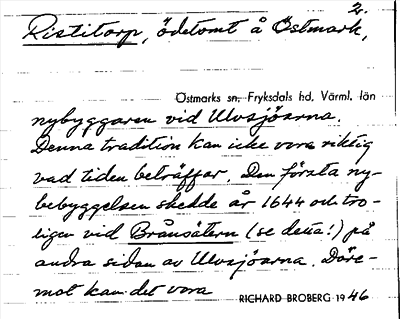 2.
Ristitorp, ödetomt å Östmark,
Östmarks sn, Fryksdals hd, Värml. län
nybyggaren vid Ulvsjöarna.
Denna tradition kan icke vara riktig
vad tiden beträffar. Den första ny-
bebyggelsen skedde år 1644 och tro-
ligen vid Brånsätern (se detta!) på
andra sidan av Ulvsjöarna. Däre-
mot kan det vara
RICHARD BROBERG 1946